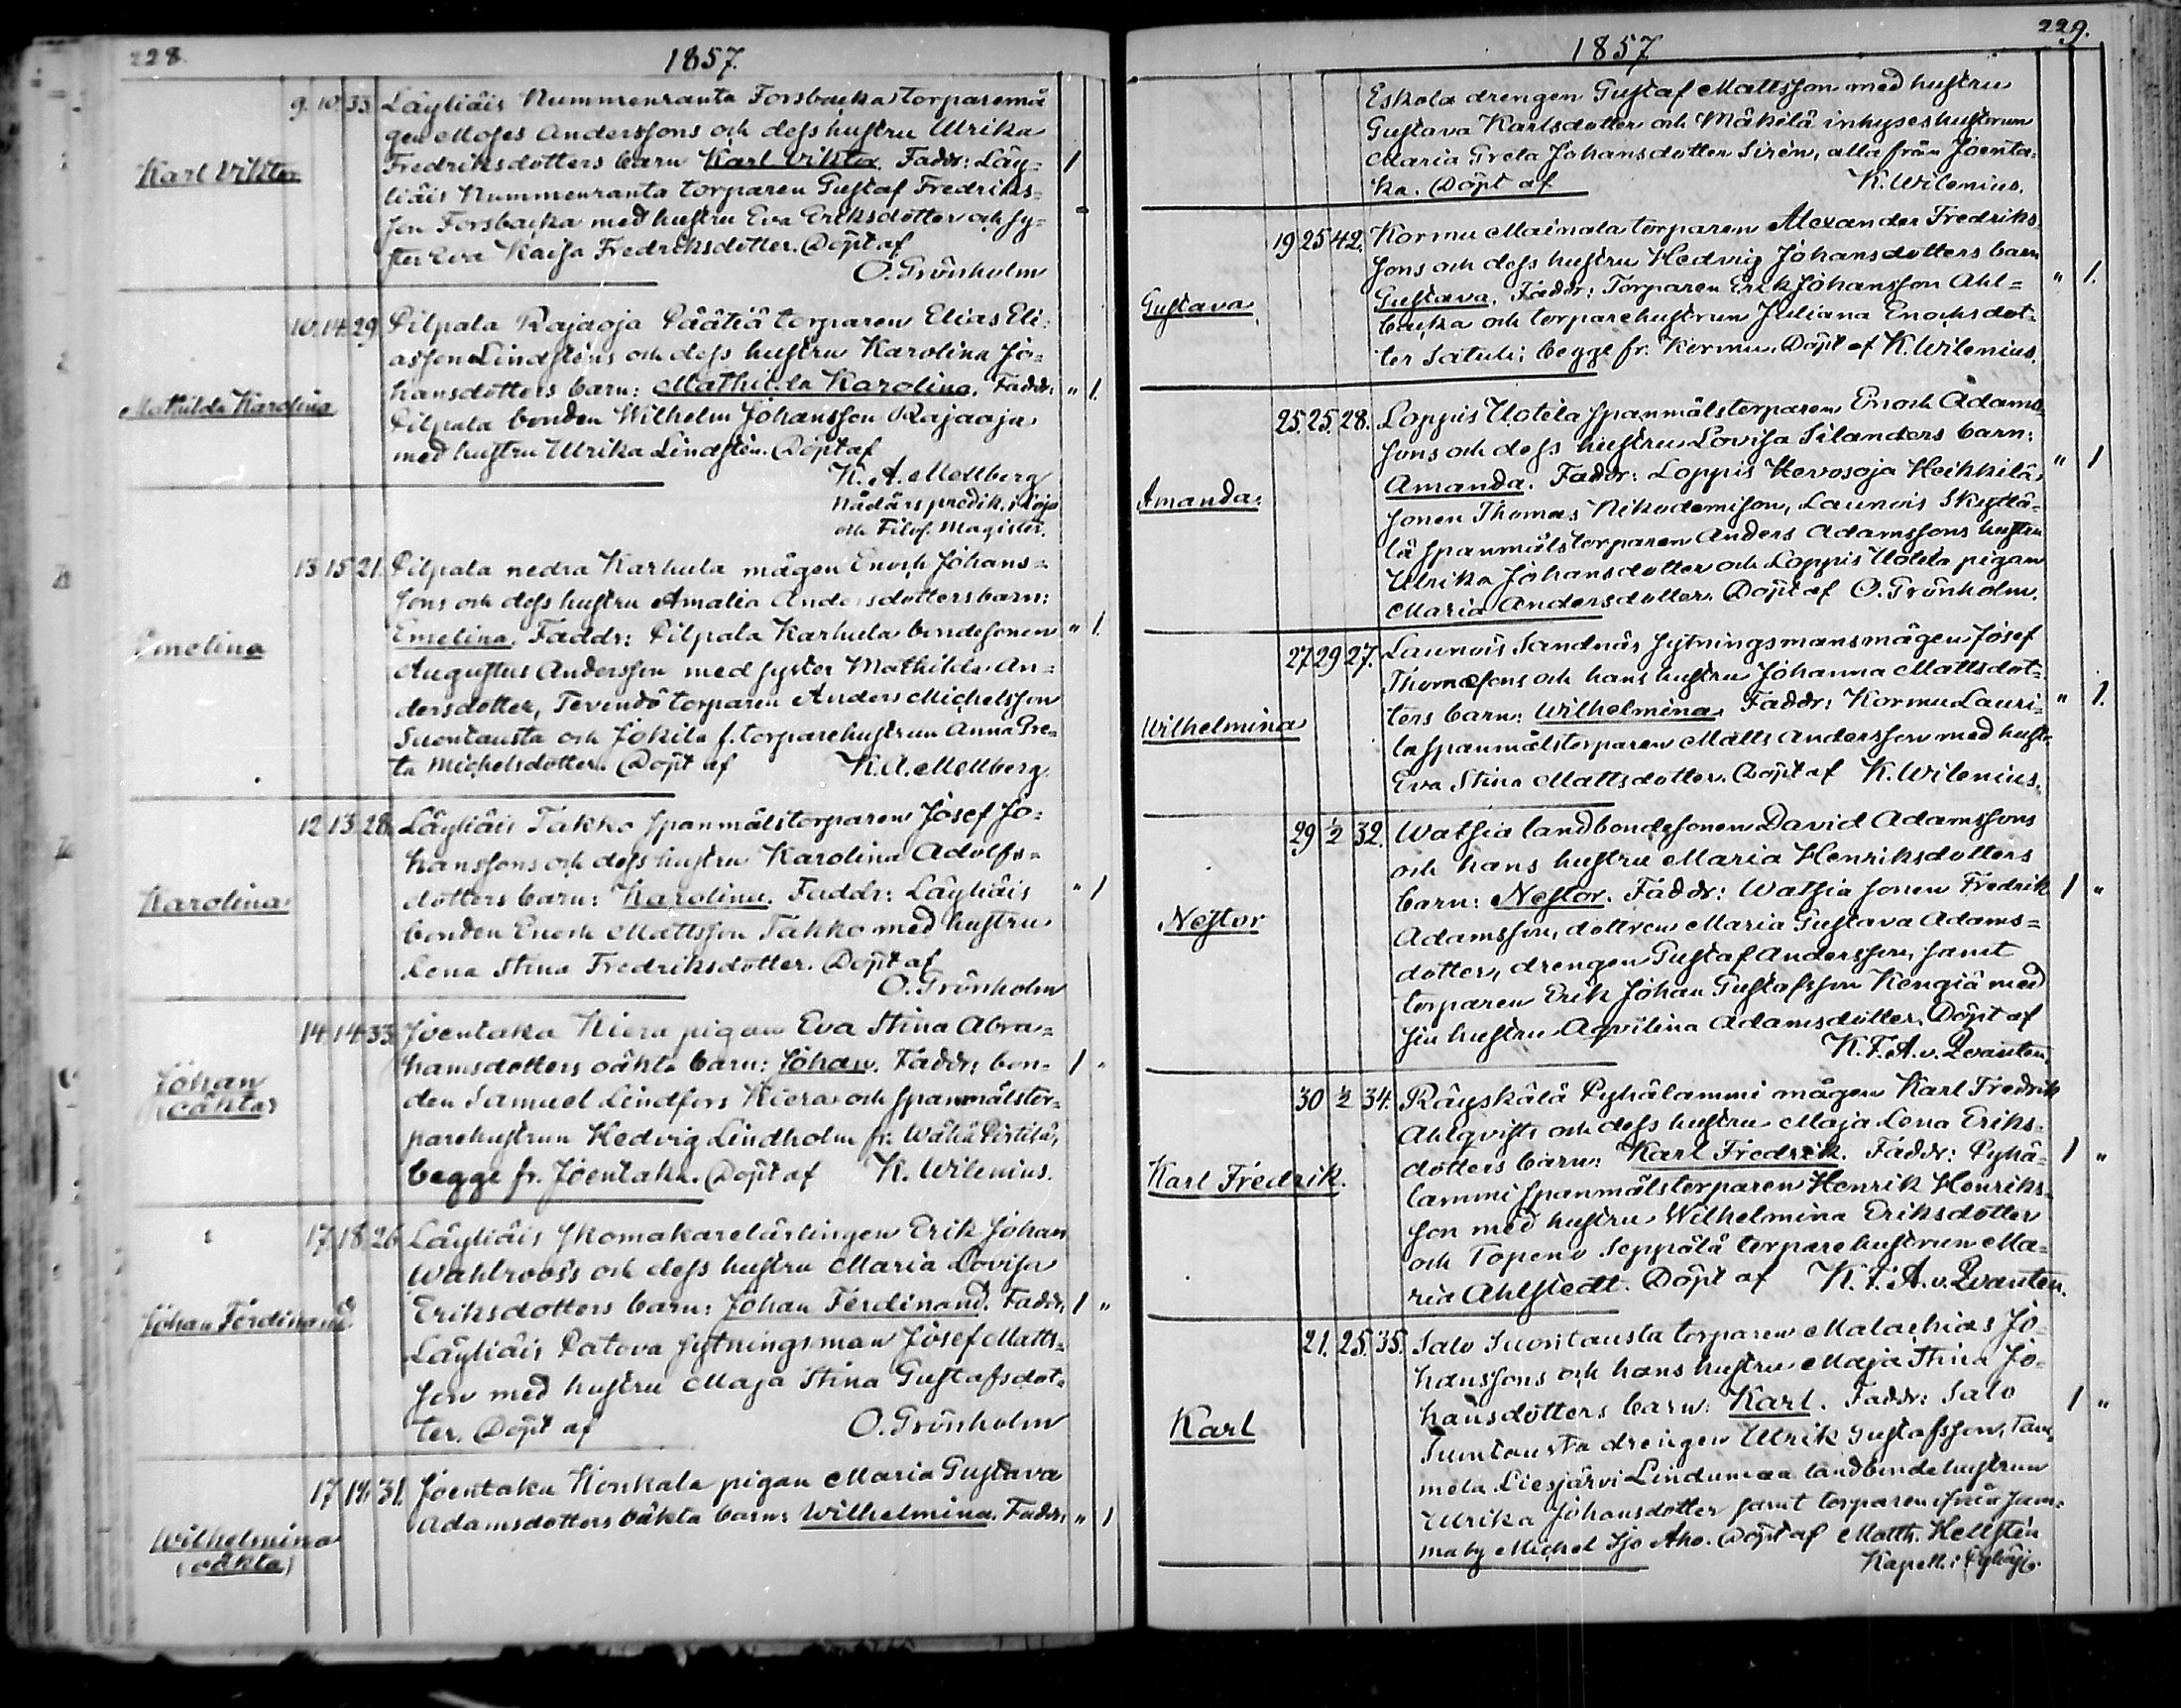 228.
1857.
Karl Viktor
9. 10. 33. Läyliäis Nummenranta Forsbacka torparemå
gen Moses Anderssons och dess hustru Ulrika
Fredriksdotters barn Karl Viktor. Faddr: Läy= 1
liäis Nummenranta torparen Gustaf Fredriks=
son Forsbacka med hustru Eva Eriksdotter och sy=
ster Eva Kaisa Fredriksdotter. Döpt af
O. Grönholm
Mathilda Karolina
10. 14. 29. Pilpala Rajaoja Päätiä torparen Elias Eli=
asson Lindsténs och dess hustru Karolina Jo=
hansdotters barn: Mathilda Karolina. Faddr: " 1.
Pilpala bonden Wilhelm Johansson Rajaoja
med hustru Ulrika Lindstén. Döpt af
K. A. Mellberg
Nådårspredik. i Lojo
och Filos. Magister.
Emelina
13 15 21. Pilpala nedra Karhula mågen Enoch Johans=
sons och dess hustru Amalia Andersdotters barn:
Emelina. Faddr: Pilpala Karhula bondesonen " 1.
Augustus Andersson med syster Mathilda An=
dersdotter, Tevendö torparen Anders Michelsson
Suontausta och Jokila f. torparehustrun Anna Gre=
ta Michelsdotter. Döpt af K. A. Mellberg
Karolina
12 13 28. Läyliäis Takko spanmålstorparen Josef Jo=
hanssons och dess hustru Karolina Adolfs=
dotters barn: Karolina. Faddr: Läyliäis " 1
bonden Enoch Mattsson Takko med hustru
Lena Stina Fredriksdotter. Döpt af
O. Grönholm
Johan
oäkta
14. 14. 33. Joentaka Kiera pigan Eva Stina Abra=
hamsdotters oäkta barn: Johan. Faddr: bon= 1 "
den Samuel Lindfors Kiera och spanmålstor=
parehustrun Hedvig Lindholm fr. Wähä Pertilä,
begge fr. Joentaka. Döpt af K. Wilenius.
Johan Ferdinand.
17 18 26 Läyliäis skomakarelärlingen Erik Johan
Wahlroos's och dess hustru Maria Lovisa
Eriksdotters barn: Johan Ferdinand. Faddr: 1 "
Läyliäis Patova sytningsman Josef Matts=
son med hustru Maja Stina Gustafsdot=
ter. Döpt af O. Grönholm
Wilhelmina
(oäkta)
17 19. 31. Joentaka Konkala pigan Maria Gustava
Adamsdotters oäkta barn: Wilhelmina. Faddr: " 1
229.
1857
Eskola drengen Gustaf Mattsson med hustru
Gustava Karlsdotter och Mäkilä inhyseshustrun
Maria Greta Johansdotter Sirén, alla från Joenta=
ka. Döpt af K. Wilenius.
Gustava.
19 25 42. Kormu Mainala torparen Alexander Fredriks
sons och dess hustru Hedvig Johansdotters barn
Gustava. Faddr: Torparen Erik Johansson Ahl= " 1.
backa och torparehustrun Juliana Enochsdot=
ter Satuli; begge fr. Kormu. Döpt af K. Wilenius.
Amanda.
25. 25. 28. Loppis Uotila spanmålstorparen Enoch Adams
sons och dess hustru Lovisa Silanders barn:
Amanda. Faddr: Loppis Hevosoja Heikkilä " 1
sonen Thomas Nikodemisson, Launois Skyttä=
lä spanmålstorparen Anders Adamssons hustru
Ulrika Johansdotter och Loppis Uotila pigan
Maria Andersdotter. Döpt af O. Grönholm.
Wilhelmina
27 29 27. Launois Sandnäs sytningsmansmågen Josef
Thomæsons och hans hustru Johanna Mattsdot=
ters barn: Wilhelmina. Faddr: Kormu Lauri= " 1.
la spanmålstorparen Matts Andersson med hust.
Eva Stina Mattsdotter. Döpt af K. Wilenius.
Nestor
29 1/2 32. Watsia landbondesonen David Adamssons
och hans hustru Maria Henriksdotters
barn: Nestor. Faddr: Watsia sonen Fredrik 1 "
Adamsson, dottren Maria Gustava Adams=
dotter, drengen Gustaf Andersson, samt
torparen Erik Johan Gustafsson Kengiä med
sin hustru Aqvilina Adamsdotter. Döpt af
K. F. A. v. Qvanten.
Karl Fredrik.
30 1/2 34. Räyskälä Pyhälammi mågen Karl Fredrik
Ahlqvists och dess hustru Maja Lena Eriks=
dotters barn: Karl Fredrik. Faddr: Pyhä= 1 "
lammi spanmålstorparen Henrik Henriks=
son med hustru Wilhelmina Eriksdotter
och Topeno Seppälä torparehustrun Ma=
ria Ahlstedt. Döpt af K. F. A. v. Qvanten.
Karl
21. 25. 35. Salo Suontausta torparen Malachias Jo=
hanssons och hans hustru Maja Stina Jo=
hansdotters barn: Karl. Faddr: Salo 1 "
Suontausta drengen Ulrik Gustafsson, Tam=
mela Liesjärvi Lindumaa landbondehustrun
Ulrika Johansdotter samt torparen från Jam=
maby Michel Iso Aho. Döpt af Matth. Hellstén
Kapell. i Pyhäjo.